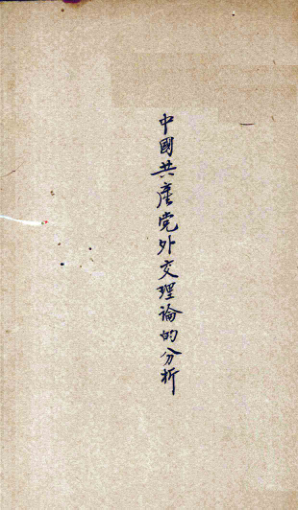 中國共產党外交理論的分析